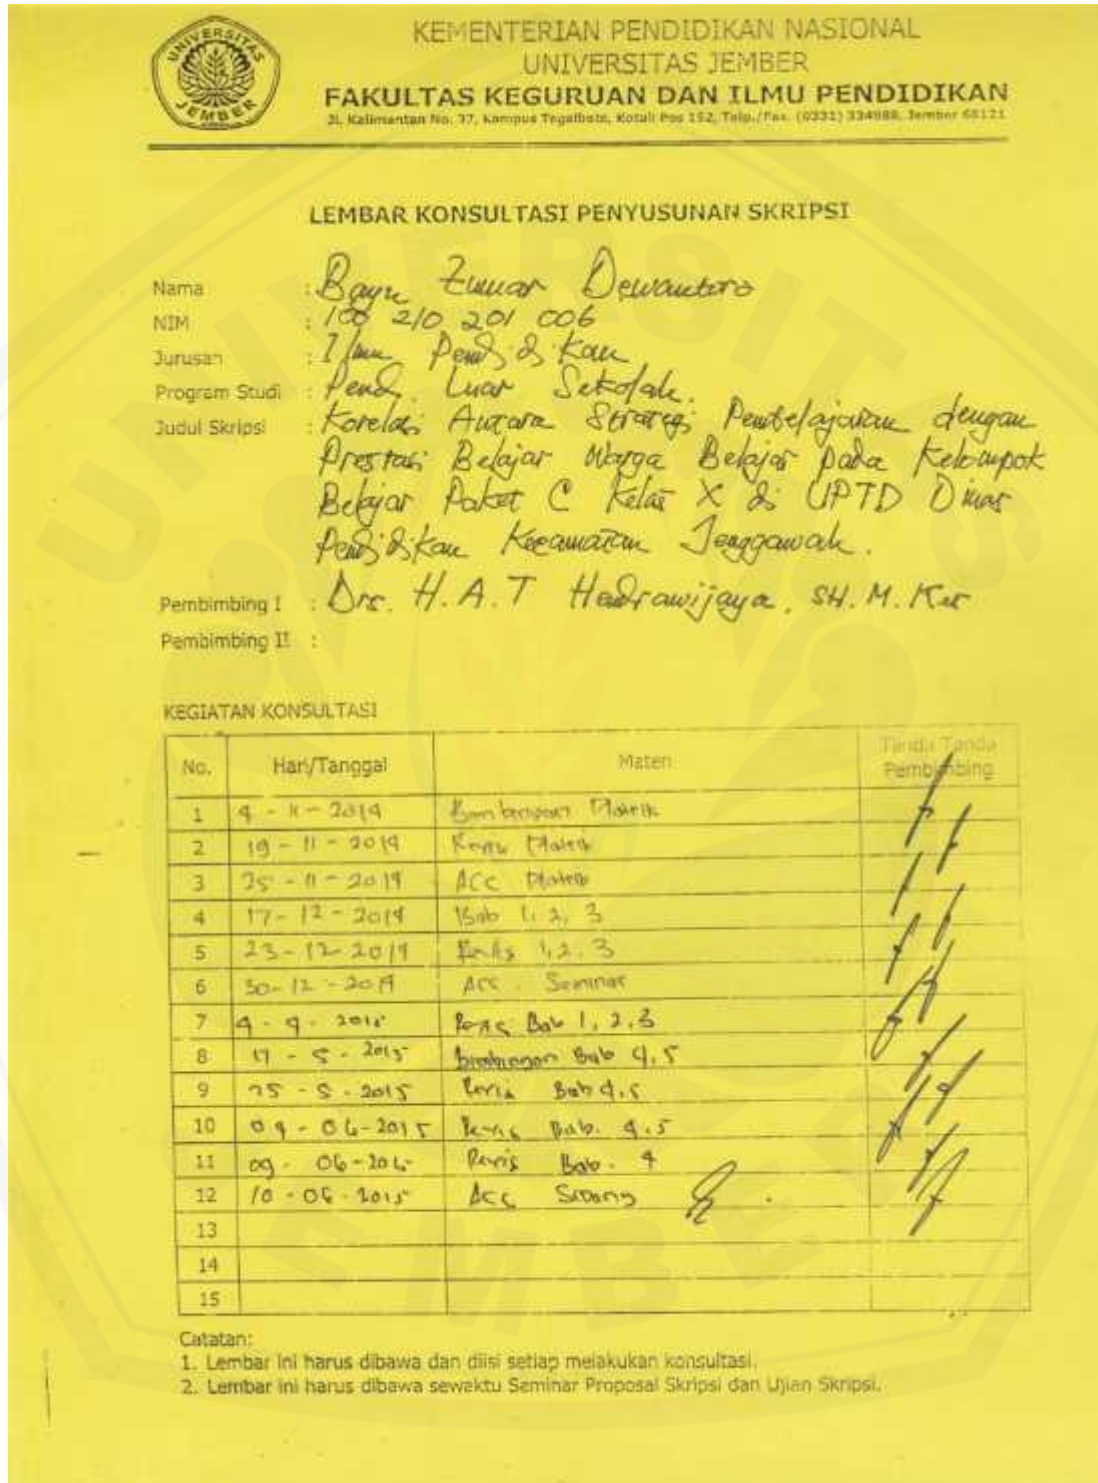 UNIVERSITAS JEMBER
KEMENTERIAN PENDIDIKAN NASIONAL
UNIVERSITAS JEMBER
FAKULTAS KEGURUAN DAN ILMU PENDIDIKAN
Jl. Kalimantan No. 37, Kampus Tegalboto, Kotak Pos 152, Telp./Fax. (0331) 334988, Jember 68121
LEMBAR KONSULTASI PENYUSUNAN SKRIPSI
Nama : Bayu Zumar Dewantoro
NIM : 100 210 201 006
Jurusan : Ilmu Pendidikan
Program Studi : Pend. Luar Sekolah.
Judul Skripsi : Korelasi Antara Strategi Pembelajaran dengan
Prestasi Belajar Warga Belajar pada Kelompok
Belajar Paket C Kelas X di UPTD Dinas
Pendidikan Kecamatan Jenggawah.
Pembimbing I : Drs. H.A.T Hendrawijaya, SH. M.Kes
Pembimbing II :
KEGIATAN KONSULTASI
No. Hari/Tanggal Materi Tanda Tanda Pembimbing
1 4 - 11 - 2014 Matrik
2 19 - 11 - 2014 Revisi Matrik
3 25 - 11 - 2014 ACC Matrik
4 17 - 12 - 2014 Bab 1, 2, 3
5 23 - 12 - 2014 Revisi 1, 2, 3
6 30 - 12 - 2014 Acc. Seminar
7 2015 Revisi Bab 1, 2, 3
8 - 5 - 2015 Bimbingan Bab 4, 5
9 25 - 5 - 2015 Revisi Bab 4, 5
10 04 - 06 - 2015 Revisi Bab. 4, 5
11 09 - 06 - Revisi Bab. 4
12 10 - 06 - 2015 Acc Sidang
13
14
15
Catatan:
1. Lembar ini harus dibawa dan diisi setiap melakukan konsultasi.
2. Lembar ini harus dibawa sewaktu Seminar Proposal Skripsi dan Ujian Skripsi.